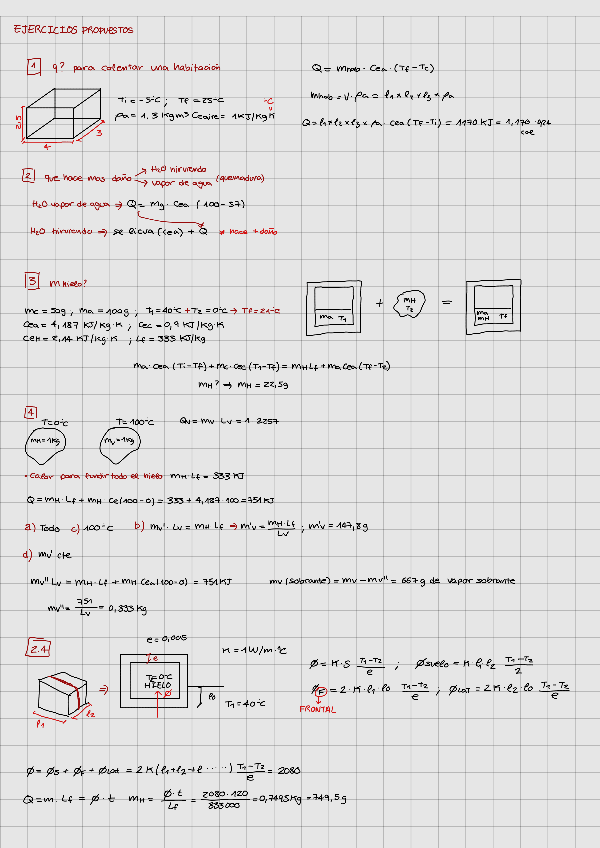 EJERCICIOS PROPUESTOS
1 q? para calentar una habitación
2,5
4
3
Ti = -5°C ; Tf = 25°C
ρa = 1,3 kg m³ Ceaire = 1 KJ/kg K
°C
Q = mhab · Cea · (Tf - Tc)
mhab = V · ρa = l₁ x l₂ x l₃ x ρa
Q = l₁ x l₂ x l₃ x ρa · cea (Tf - Ti) = 1170 KJ = 1,170 ·
cal
2 que hace mas daño → H₂O hirviendo
→ vapor de agua (quemadura)
H₂O vapor de agua → Q = mg · Cea (100 - 37)
H₂O hirviendo → se licua (cea) + Q * hace + daño
3 m hielo?
mc = 50g , ma = 100g ; T₁ = 40°C + T₂ = 0°C → Tf = 21°C
Cea = 4,187 KJ/kg·K ; Cec = 0,9 KJ/kg·K
CeH = 2,14 KJ/kg·K ; Lf = 333 KJ/kg
ma T₁ + mH T₂ = ma mH Tf
ma · cea (T₁ - Tf) + mc · cec (T₁ - Tf) = mH Lf + mH cea (Tf - T₂)
mH? → mH = 22,5g
4
T = 0°C T = 100°C Qv = mv Lv = 1 · 2257
mH = 1kg mv = 1kg
· Calor para fundir todo el hielo mH · Lf = 333 KJ
Q = mH · Lf + mH Ce (100 - 0) = 333 + 4,187 · 100 = 751 KJ
a) Todo c) 100°C b) mv' · Lv = mH Lf → m'v = mH · Lf / Lv ; m'v = 147,8g
d) mv' cte
mv'' Lv = mH · Lf + mH Cea (100 - 0) = 751 KJ mv (sobrante) = mv - mv'' = 667 g de vapor sobrante
mv'' = 751 / Lv = 0,333 kg
2.4
e = 0,005
K = 1 W/m·°C
l₁ l₂
e
T = 0°C
HIELO
Ø
l₀
T₁ = 40°C
Ø = K · S T₁ - T₂ / e ; Øsuelo = K · l₁ l₂ T₁ - T₂ / 2
Ø F = 2 · K · l₁ l₀ T₁ - T₂ / e ; Ølat = 2 K · l₂ · l₀ T₁ - T₂ / e
FRONTAL
Ø = Øs + ØF + Ølat = 2 K (l₁ + l₂ + l ·····) T₁ - T₂ / e = 2080
Q = m · Lf = Ø · t mH = Ø · t / Lf = 2080 · 120 / 333000 = 0,7495 kg = 749,5 g